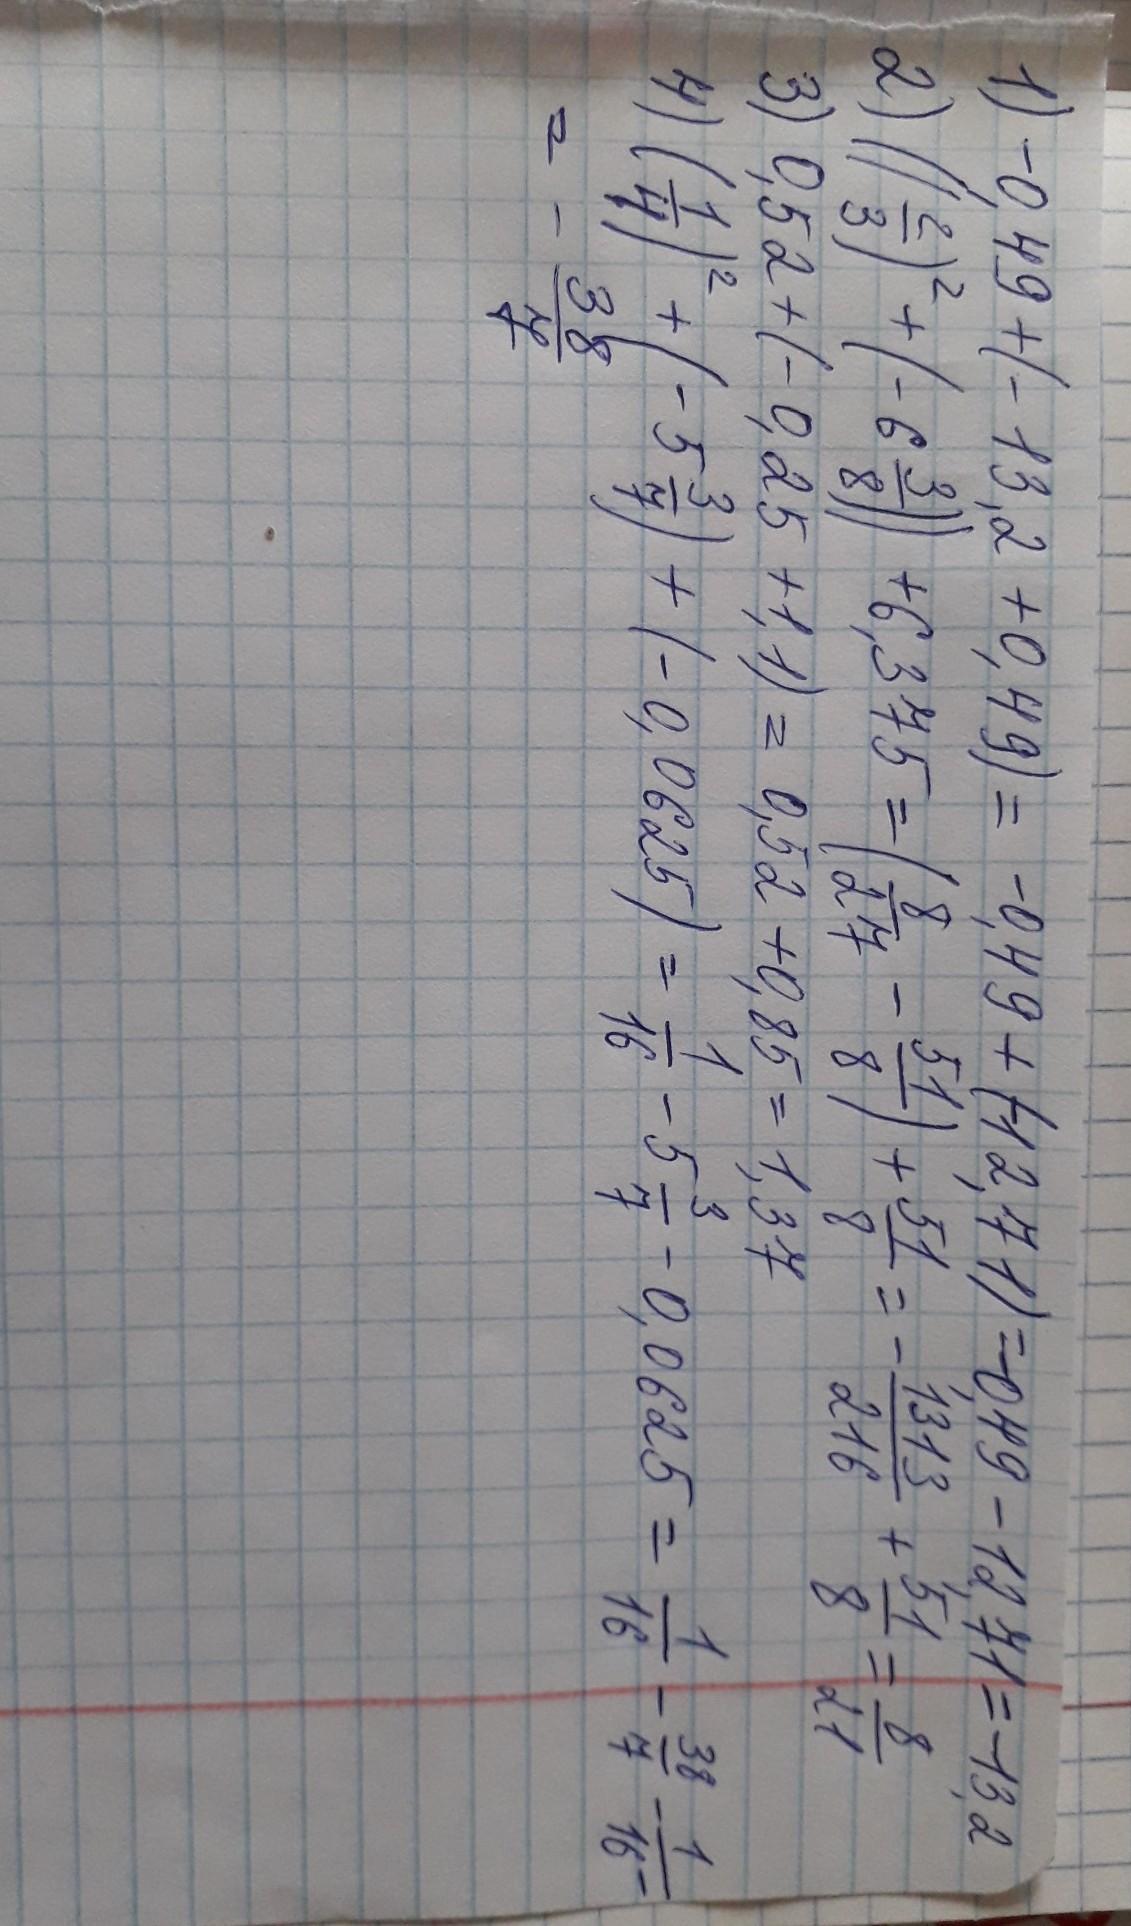 1) -0,49+(-13,2+0,49)= -0,49+(-12,71)=-0,49-12,71=-13,2
2) ((2/3)²+(-6 3/8))+6,375=(8/27-51/8)+51/8=-1313/216+51/8=8/21
3) 0,52+(-0,25+1,1)=0,52+0,85=1,37
4) (1/4)²+(-5 3/7)+(-0,0625)=1/16-5 3/7-0,0625=1/16-38/7-1/16=
= -38/7